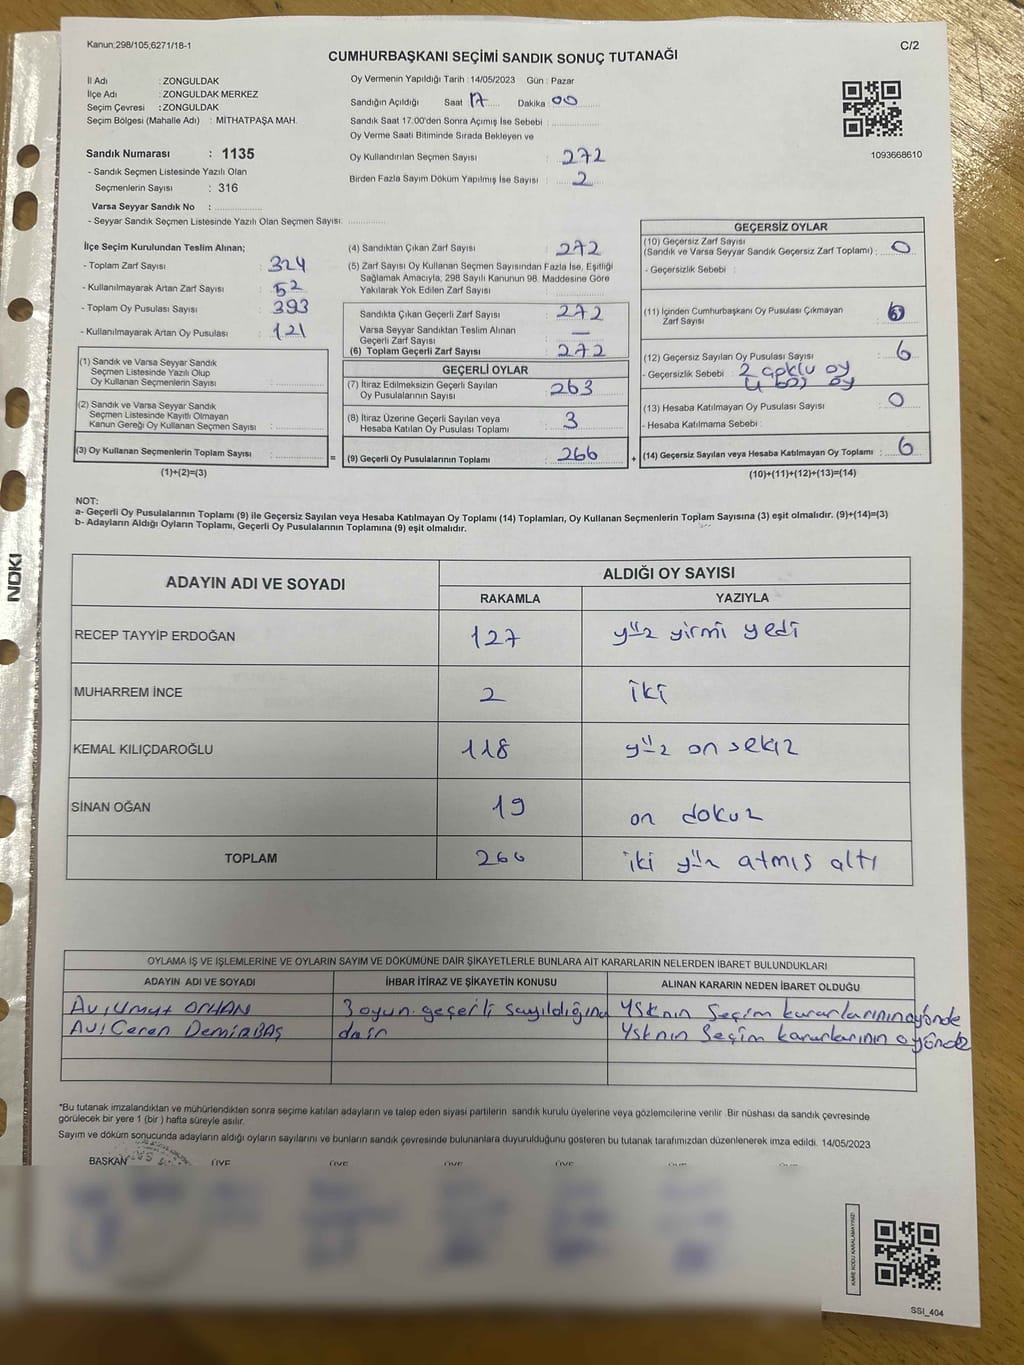 Kanun;298/105;6271/18-1
C/2
CUMHURBAŞKANI SEÇİMİ SANDIK SONUÇ TUTANAĞI
İl Adı : ZONGULDAK
İlçe Adı : ZONGULDAK MERKEZ
Seçim Çevresi : ZONGULDAK
Seçim Bölgesi (Mahalle Adı) : MİTHATPAŞA MAH.
Sandık Numarası : 1135
- Sandık Seçmen Listesinde Yazılı Olan
Seçmenlerin Sayısı : 316
Varsa Seyyar Sandık No :
- Seyyar Sandık Seçmen Listesinde Yazılı Olan Seçmen Sayısı:
Oy Vermenin Yapıldığı Tarih : 14/05/2023 Gün : Pazar
Sandığın Açıldığı Saat 17 Dakika 00
Sandık Saat 17:00'den Sonra Açımış İse Sebebi :
Oy Verme Saati Bitiminde Sırada Bekleyen ve
Oy Kullandırılan Seçmen Sayısı : 272
Birden Fazla Sayım Döküm Yapılmış İse Sayısı : 2
1093668610
İlçe Seçim Kurulundan Teslim Alınan;
- Toplam Zarf Sayısı : 324
- Kullanılmayarak Artan Zarf Sayısı : 52
- Toplam Oy Pusulası : 393
- Kullanılmayarak Artan Oy Pusulası : 121
(1) Sandık ve Varsa Seyyar Sandık
Seçmen Listesinde Yazılı Olup
Oy Kullanan Seçmenlerin Sayısı :
(2) Sandık ve Varsa Seyyar Sandık
Seçmen Listesinde Kayıtlı Olmayan
Kanun Gereği Oy Kullanan Seçmen Sayısı :
(3) Oy Kullanan Seçmenlerin Toplam Sayısı :
(1)+(2)=(3)
(4) Sandıktan Çıkan Zarf Sayısı : 272
(5) Zarf Sayısı Oy Kullanan Seçmen Sayısından Fazla İse, Eşitliği
Sağlamak Amacıyla, 298 Sayılı Kanunun 98. Maddesine Göre
Yakılarak Yok Edilen Zarf Sayısı :
Sandıkta Çıkan Geçerli Zarf Sayısı : 272
Varsa Seyyar Sandıktan Teslim Alınan
Geçerli Zarf Sayısı : —
(6) Toplam Geçerli Zarf Sayısı : 272
GEÇERLİ OYLAR
(7) İtiraz Edilmeksizin Geçerli Sayılan
Oy Pusulalarının Sayısı : 263
(8) İtiraz Üzerine Geçerli Sayılan veya
Hesaba Katılan Oy Pusulası Toplamı : 3
= (9) Geçerli Oy Pusulalarının Toplamı : 266
GEÇERSİZ OYLAR
(10) Geçersiz Zarf Sayısı
(Sandık ve Varsa Seyyar Sandık Geçersiz Zarf Toplamı) : 0
- Geçersizlik Sebebi :
(11) İçinden Cumhurbaşkanı Oy Pusulası Çıkmayan
Zarf Sayısı :
(12) Geçersiz Sayılan Oy Pusulası Sayısı : 6
- Geçersizlik Sebebi : 2 oy
4 boş oy
(13) Hesaba Katılmayan Oy Pusulası Sayısı : 0
- Hesaba Katılmama Sebebi :
+ (14) Geçersiz Sayılan veya Hesaba Katılmayan Oy Toplamı : 6
(10)+(11)+(12)+(13)=(14)
NOT:
a- Geçerli Oy Pusulalarının Toplamı (9) ile Geçersiz Sayılan veya Hesaba Katılmayan Oy Toplamı (14) Toplamları, Oy Kullanan Seçmenlerin Toplam Sayısına (3) eşit olmalıdır. (9)+(14)=(3)
b- Adayların Aldığı Oyların Toplamı, Geçerli Oy Pusulalarının Toplamına (9) eşit olmalıdır.
ADAYIN ADI VE SOYADI
ALDIĞI OY SAYISI
RAKAMLA YAZIYLA
RECEP TAYYİP ERDOĞAN 127 yüz yirmi yedi
MUHARREM İNCE 2 iki
KEMAL KILIÇDAROĞLU 118 yüz on sekiz
SİNAN OĞAN 19 on dokuz
TOPLAM 266 iki yüz atmış altı
OYLAMA İŞ VE İŞLEMLERİNE VE OYLARIN SAYIM VE DÖKÜMÜNE DAİR ŞİKAYETLERLE BUNLARA AİT KARARLARIN NELERDEN İBARET BULUNDUKLARI
ADAYIN ADI VE SOYADI İHBAR İTİRAZ VE ŞİKAYETİN KONUSU ALINAN KARARIN NEDEN İBARET OLDUĞU
Av, Umut ORHAN 3 oyun geçerli sayıldığına Ysknın Seçim kararlarının
Av, Ceren DemirBAŞ dair Ysknın Seçim kararlarının
*Bu tutanak imzalandıktan ve mühürlendikten sonra seçime katılan adayların ve talep eden siyasi partilerin sandık kurulu üyelerine veya gözlemcilerine verilir. Bir nüshası da sandık çevresinde
görülecek bir yere 1 (bir ) hafta süreyle asılır.
Sayım ve döküm sonucunda adayların aldığı oyların sayılarını ve bunların sandık çevresinde bulunanlara duyurulduğunu gösteren bu tutanak tarafımızdan düzenlenerek imza edildi. 14/05/2023
BAŞKAN ÜYE ÜYE ÜYE ÜYE ÜYE
KARE KODU KARALAMAYINIZ!
SSİ_404